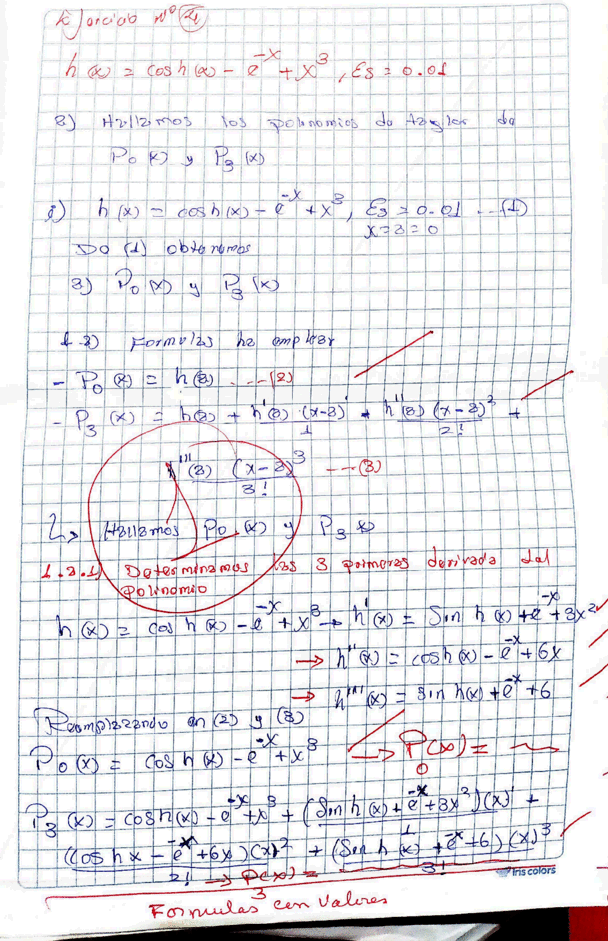 Ejercicio Nº 4
h(x) = cosh(x) - e^-x + x^3, Es = 0.01
a) Hallamos los polinomios de taylor de
P0(x) y P3(x)
i) h(x) = cosh(x) - e^-x + x^3, Es = 0.01 ...(1)
x = a = 0
De (1) obtenemos
a) P0(x) y P3(x)
1.a) Formulas ha emplear
- P0(x) = h(a) ...(2)
- P3(x) = h(a) + h'(a)·(x-a)'/1 + h''(a)(x-a)^2/2! +
h'''(a)(x-a)^3/3! ...(3)
Hallamos P0(x) y P3(x)
1.a.1) Determinamos las 3 primeras derivada del
polinomio
h(x) = cosh(x) - e^-x + x^3 → h'(x) = Sinh(x) + e^-x + 3x^2
→ h''(x) = cosh(x) - e^-x + 6x
→ h'''(x) = sinh(x) + e^-x + 6
Reemplazando en (2) y (3)
P0(x) = cosh(x) - e^-x + x^3 → P0(x) =
P3(x) = cosh(x) - e^-x + x^3 + (Sinh(x) + e^-x + 3x^2)(x)'/1 +
(cosh x - e^-x + 6x)(x)^2/2! + (Senh(x) + e^-x + 6)(x)^3/3!
→ P3(x) =
Iris colors
Formulas con valores